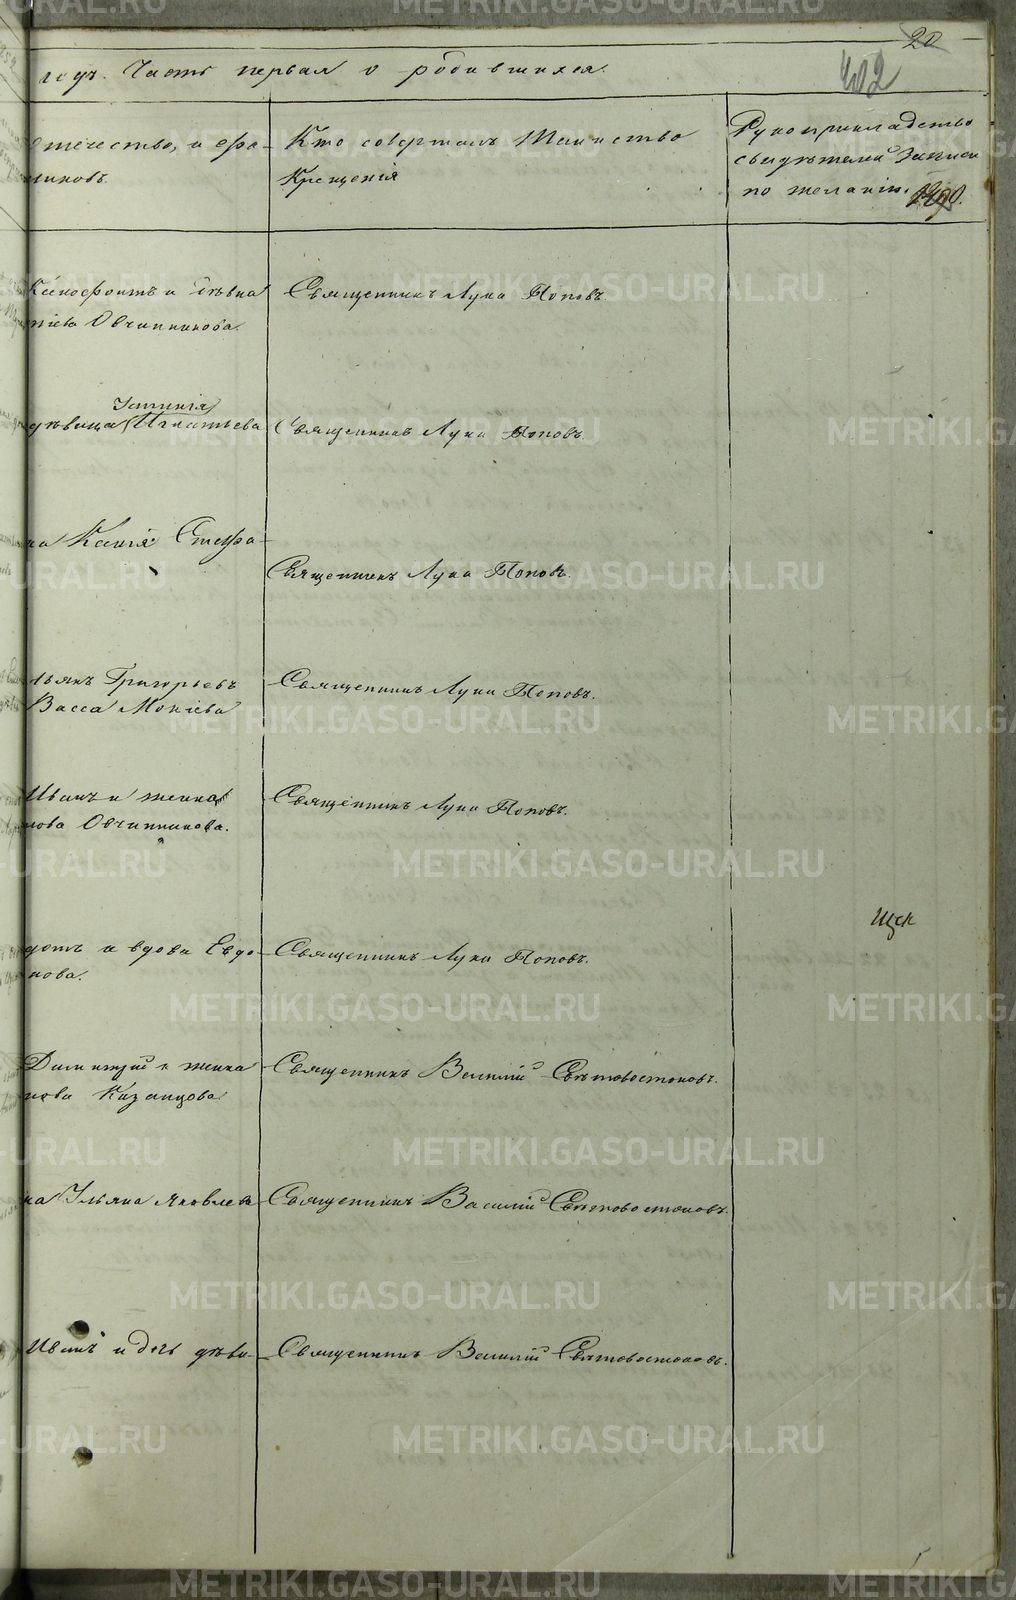 20
402
годъ. Часть первая о родившихся.
Отчество, и фа-
миковъ.
Кто совершалъ Таинство
Крещенія
Рукоприкладство
свидѣтелей записи
по желанію.
Ксенофонтъ и дѣвка
Овчинникова.
Священникъ Лука Поповъ.
Устинія
дѣвица Игнатьева
Священникъ Лука Поповъ.
на Ксенія Стефа-
Священникъ Лука Поповъ.
льянъ Григорьевъ
Васса Мокіева
Священникъ Лука Поповъ.
Иванъ и женка
нова Овчинникова.
Священникъ Лука Поповъ.
дотъ и вдова Евдо-
нова.
Священникъ Лука Поповъ.
Димитрій и женка
нова Казанцова
Священникъ Василій Свѣтовостоковъ.
на Ульяна Яковлева
Священникъ Василій Свѣтовостоковъ.
Иванъ и дочь дѣви-
Священникъ Василій Свѣтовостоковъ.
METRIKI.GASO-URAL.RU